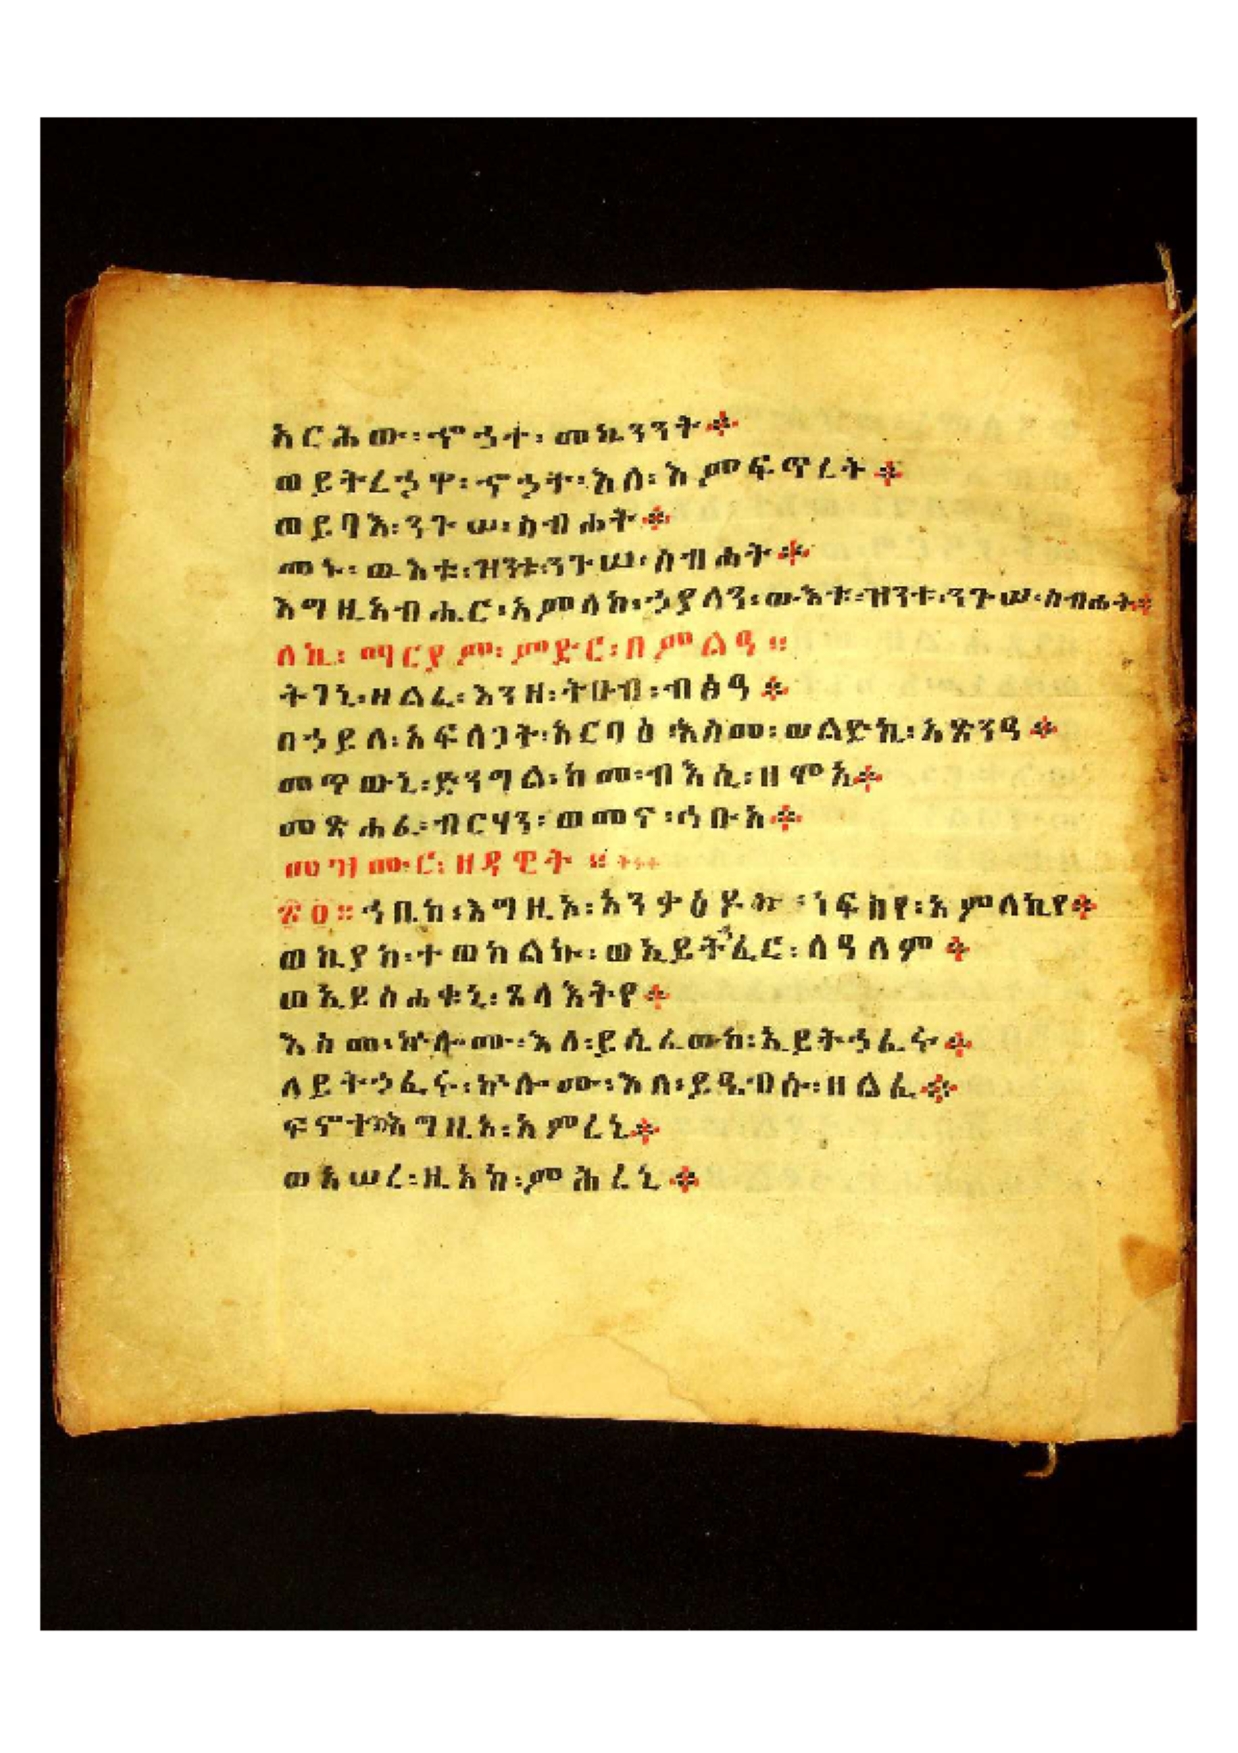 አርሕው፡ኆኃተ፡መኳንንት፨
ወይትረኃዋ፡ኆኃት፡እለ፡እምፍጥረት፨
ወይባእ፡ንጉሠ፡ስብሐት፨
መኑ፡ውእቱ፡ዝንቱ፡ንጉሠ፡ስብሐት፨
እግዚአብሔር፡አምላከ፡ኃያላን፡ውእቱ፡ዝንቱ፡ንጉሠ፡ስብሐት፨
ለኪ፡ማርያም፡ምድር፡በምልዓ።
ትገኒ፡ዘልፈ፡እንዘ፡ትሁብ፡ብፅዓ፨
በኃይለ፡አፍላጋት፡አርባዕ፡እስመ፡ወልድኪ፡አጽንዓ፨
መጥውኒ፡ድንግል፡ከመ፡ብእሲ፡ዘሞአ፨
መጽሐፈ፡ብርሃን፡ወመና፡ኅቡአ፨
መዝሙር፡ዘዳዊት።
፳፬። ኀቤከ፡እግዚኦ፡አንቃዕዶኩ፡ነፍስየ፡አምላኪየ፨
ወኪያከ፡ተወከልኩ፡ወኢይትኀፈር፡ለዓለም፨
ወኢይስሐቁኒ፡ጸላእትየ፨
እስመ፡ኵሎሙ፡እለ፡ይሴፈዉከ፡ኢይትኀፈሩ፨
ለይትኃፈሩ፡ኵሎሙ፡እለ፡ይዔብሱ፡ዘልፈ፨
ፍኖተከ፡እግዚኦ፡አምረኒ፨
ወአሠረ፡ዚአከ፡ምሕረኒ፨